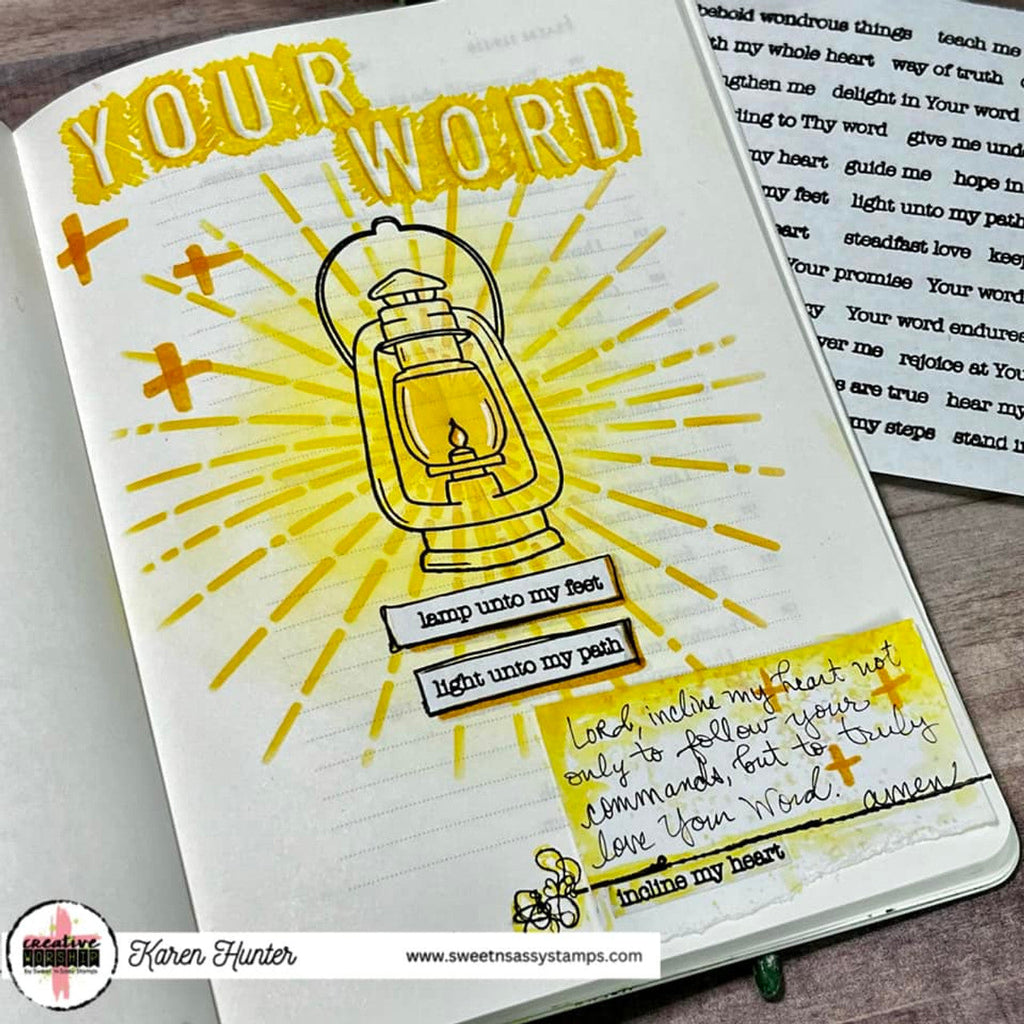 YOUR
WORD
lamp unto my feet
light unto my path
Lord, incline my heart not
only to follow your
commands, but to truly
love Your Word. amen
incline my heart
behold wondrous things teach me
my whole heart way of truth
me delight in Your word
to Thy word give me
my heart guide me hope in
my feet light unto my path
steadfast love
Your promise Your word
Your word endures
me rejoice at
are true hear my
my steps stand in
creative
WORSHIP
by Sweet 'n Sassy Stamps
Karen Hunter
www.sweetnsassystamps.com